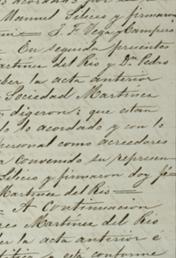 s acordado.= y los
Manuel Silicio y firmaron
= J. F. Vega y Campero
En seguida presentes
artinez del Rio y Dn Pedro
ber la acta anterior
Sociedad Martinez
digeron; que estan
lo acordado y con lo
personal como acredores
a convenido su represen
Silicio y firmaron doy fé
Martinez del Rio=
= A Continuacion
res Martinez del Rio
ber la acta anterior é
esta conforme